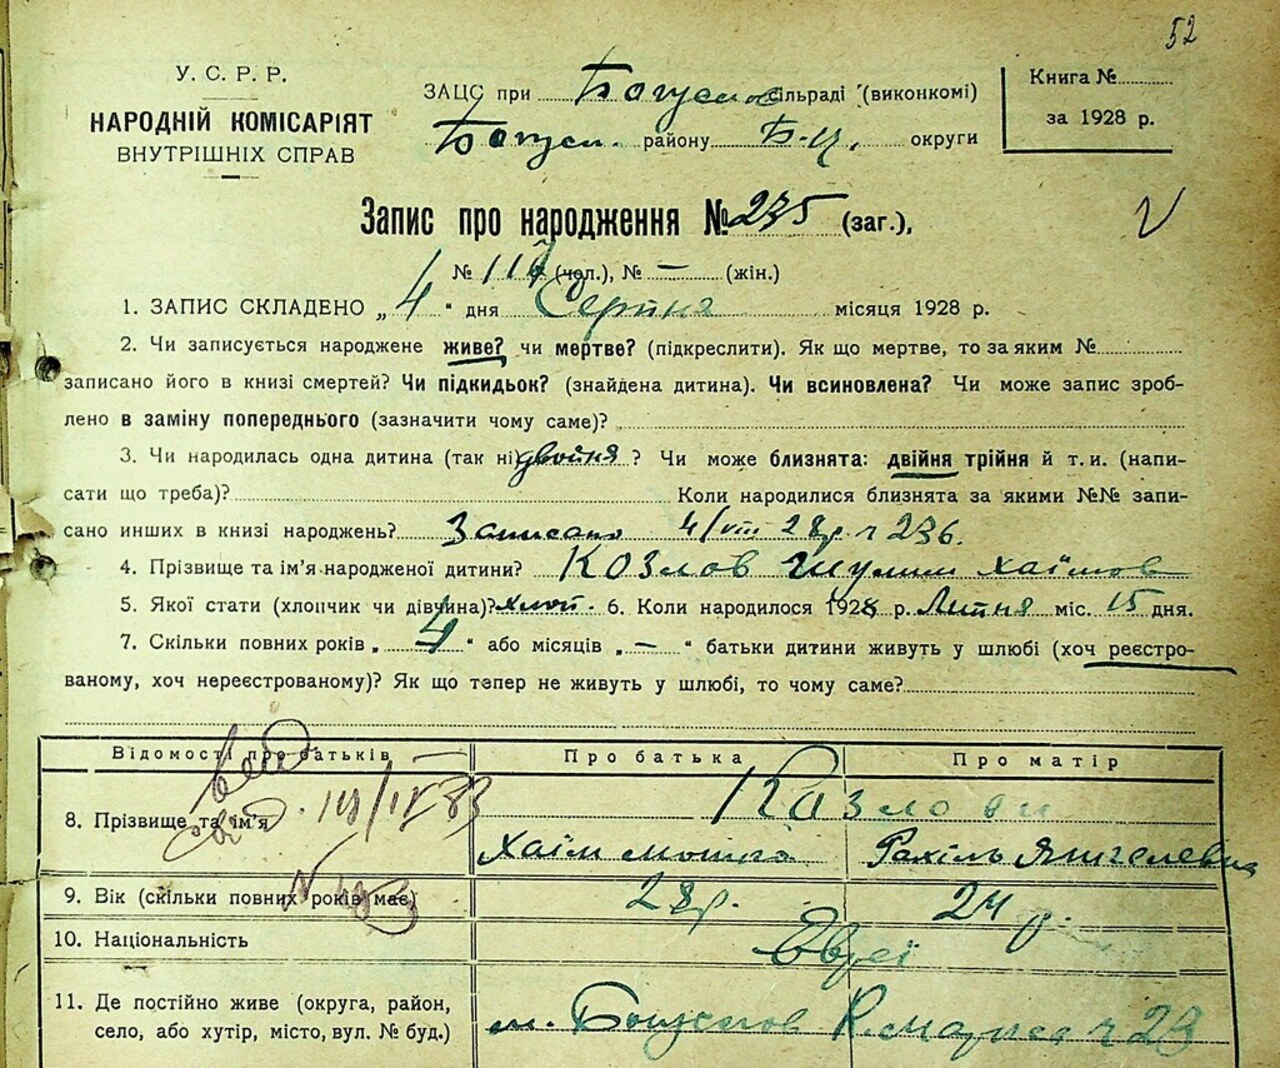 52
У. С. Р. Р.
НАРОДНІЙ КОМІСАРІЯТ
ВНУТРІШНІХ СПРАВ
ЗАЦС при Богуслов сільраді (виконкомі)
Богусл. району Б-Ц. округи
Книга №
за 1928 р.
Запис про народження № 235 (заг.),
№ 117 (чол.), № — (жін.)
1. ЗАПИС СКЛАДЕНО „ 4 “ дня Серпня місяця 1928 р.
2. Чи записується народжене живе? чи мертве? (підкреслити). Як що мертве, то за яким №
записано його в книзі смертей? Чи підкидьок? (знайдена дитина). Чи всиновлена? Чи може запис зроб-
лено в заміну попереднього (зазначити чому саме)?
3. Чи народилась одна дитина (так ні) двойня ? Чи може близнята: двійня трійня й т. и. (напи-
сати що треба)? Коли народилися близнята за якими №№ запи-
сано инших в книзі народжень? Записано 4/VIII 28р. ч 236.
4. Прізвище та ім'я народженої дитини? Козлов Шулим Хаїмов
5. Якої стати (хлопчик чи дівчина)? хлоп. 6. Коли народилося 1928 р. Липня міс. 15 дня.
7. Скільки повних років „ 4 “ або місяців „ — “ батьки дитини живуть у шлюбі (хоч реєстро-
ваному, хоч нереєстрованому)? Як що тепер не живуть у шлюбі, то чому саме?
Відомості про батьків Про батька Про матір
Козлови
8. Прізвище та ім'я Хаїм Рахіль
9. Вік (скільки повних років має) 28р. 24 р.
10. Національність Евреї
11. Де постійно живе (округа, район,
село, або хутір, місто, вул. № буд.) м. Богуслов К. Маркса ч 23